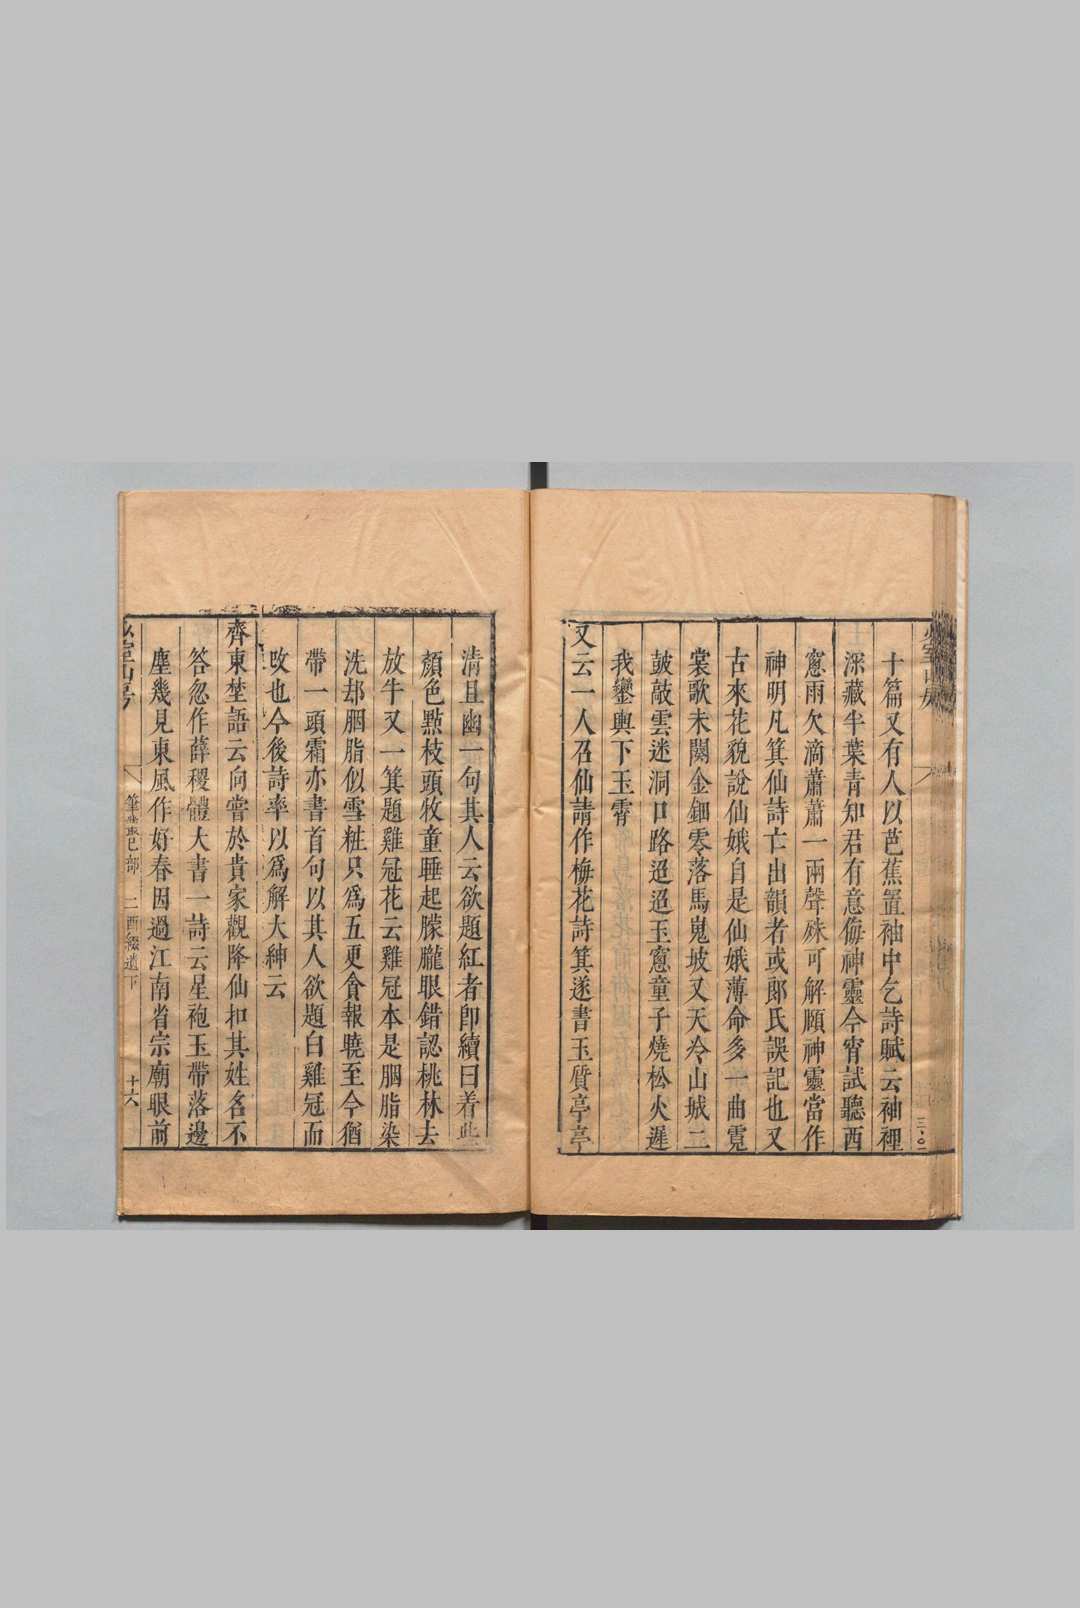 十篇又有人以芭蕉置袖中乞詩賦云袖裡
深藏半葉青知君有意侮神靈今宵試聽西
窻雨欠滴蕭蕭一兩聲殊可解願神靈當作
神明凡箕仙詩亡出韻者或郎氏誤記也又
古來花貌說仙娥自是仙娥薄命多一曲霓
裳歌未闋金鈿零落馬嵬坡又天冷山城二
鼓敲雲迷洞口路迢迢玉窻童子燒松火遲
我鑾輿下玉霄
又云一人召仙請作梅花詩箕遂書玉質亭亭
清且幽一句其人云欲題紅者即續曰着些
顏色點枝頭牧童睡起朦朧眼錯認桃林去
放牛又一箕題雞冠花云雞冠本是胭脂染
洗却胭脂似雪粧只爲五更貪報曉至今猶
帶一頭霜亦書首句以其人欲題白雞冠而
攺也今後詩率以爲解大紳云
齊東埜語云向嘗於貴家觀降仙扣其姓名不
答忽作薛稷體大書一詩云星袍玉帶落邊
塵幾見東風作好春因過江南省宗廟眼前
少室山房
筆叢巳部 二酉綴遺下
十六